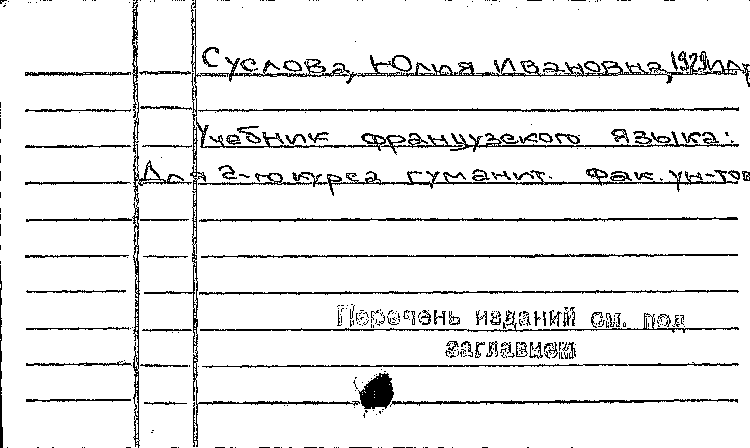 Суслова, Юлия Ивановна, 1929 и др
Учебник французского языка:
Для 2-го курса гуманит. фак. ун-тов
Перечень изданий см. под
заглавием